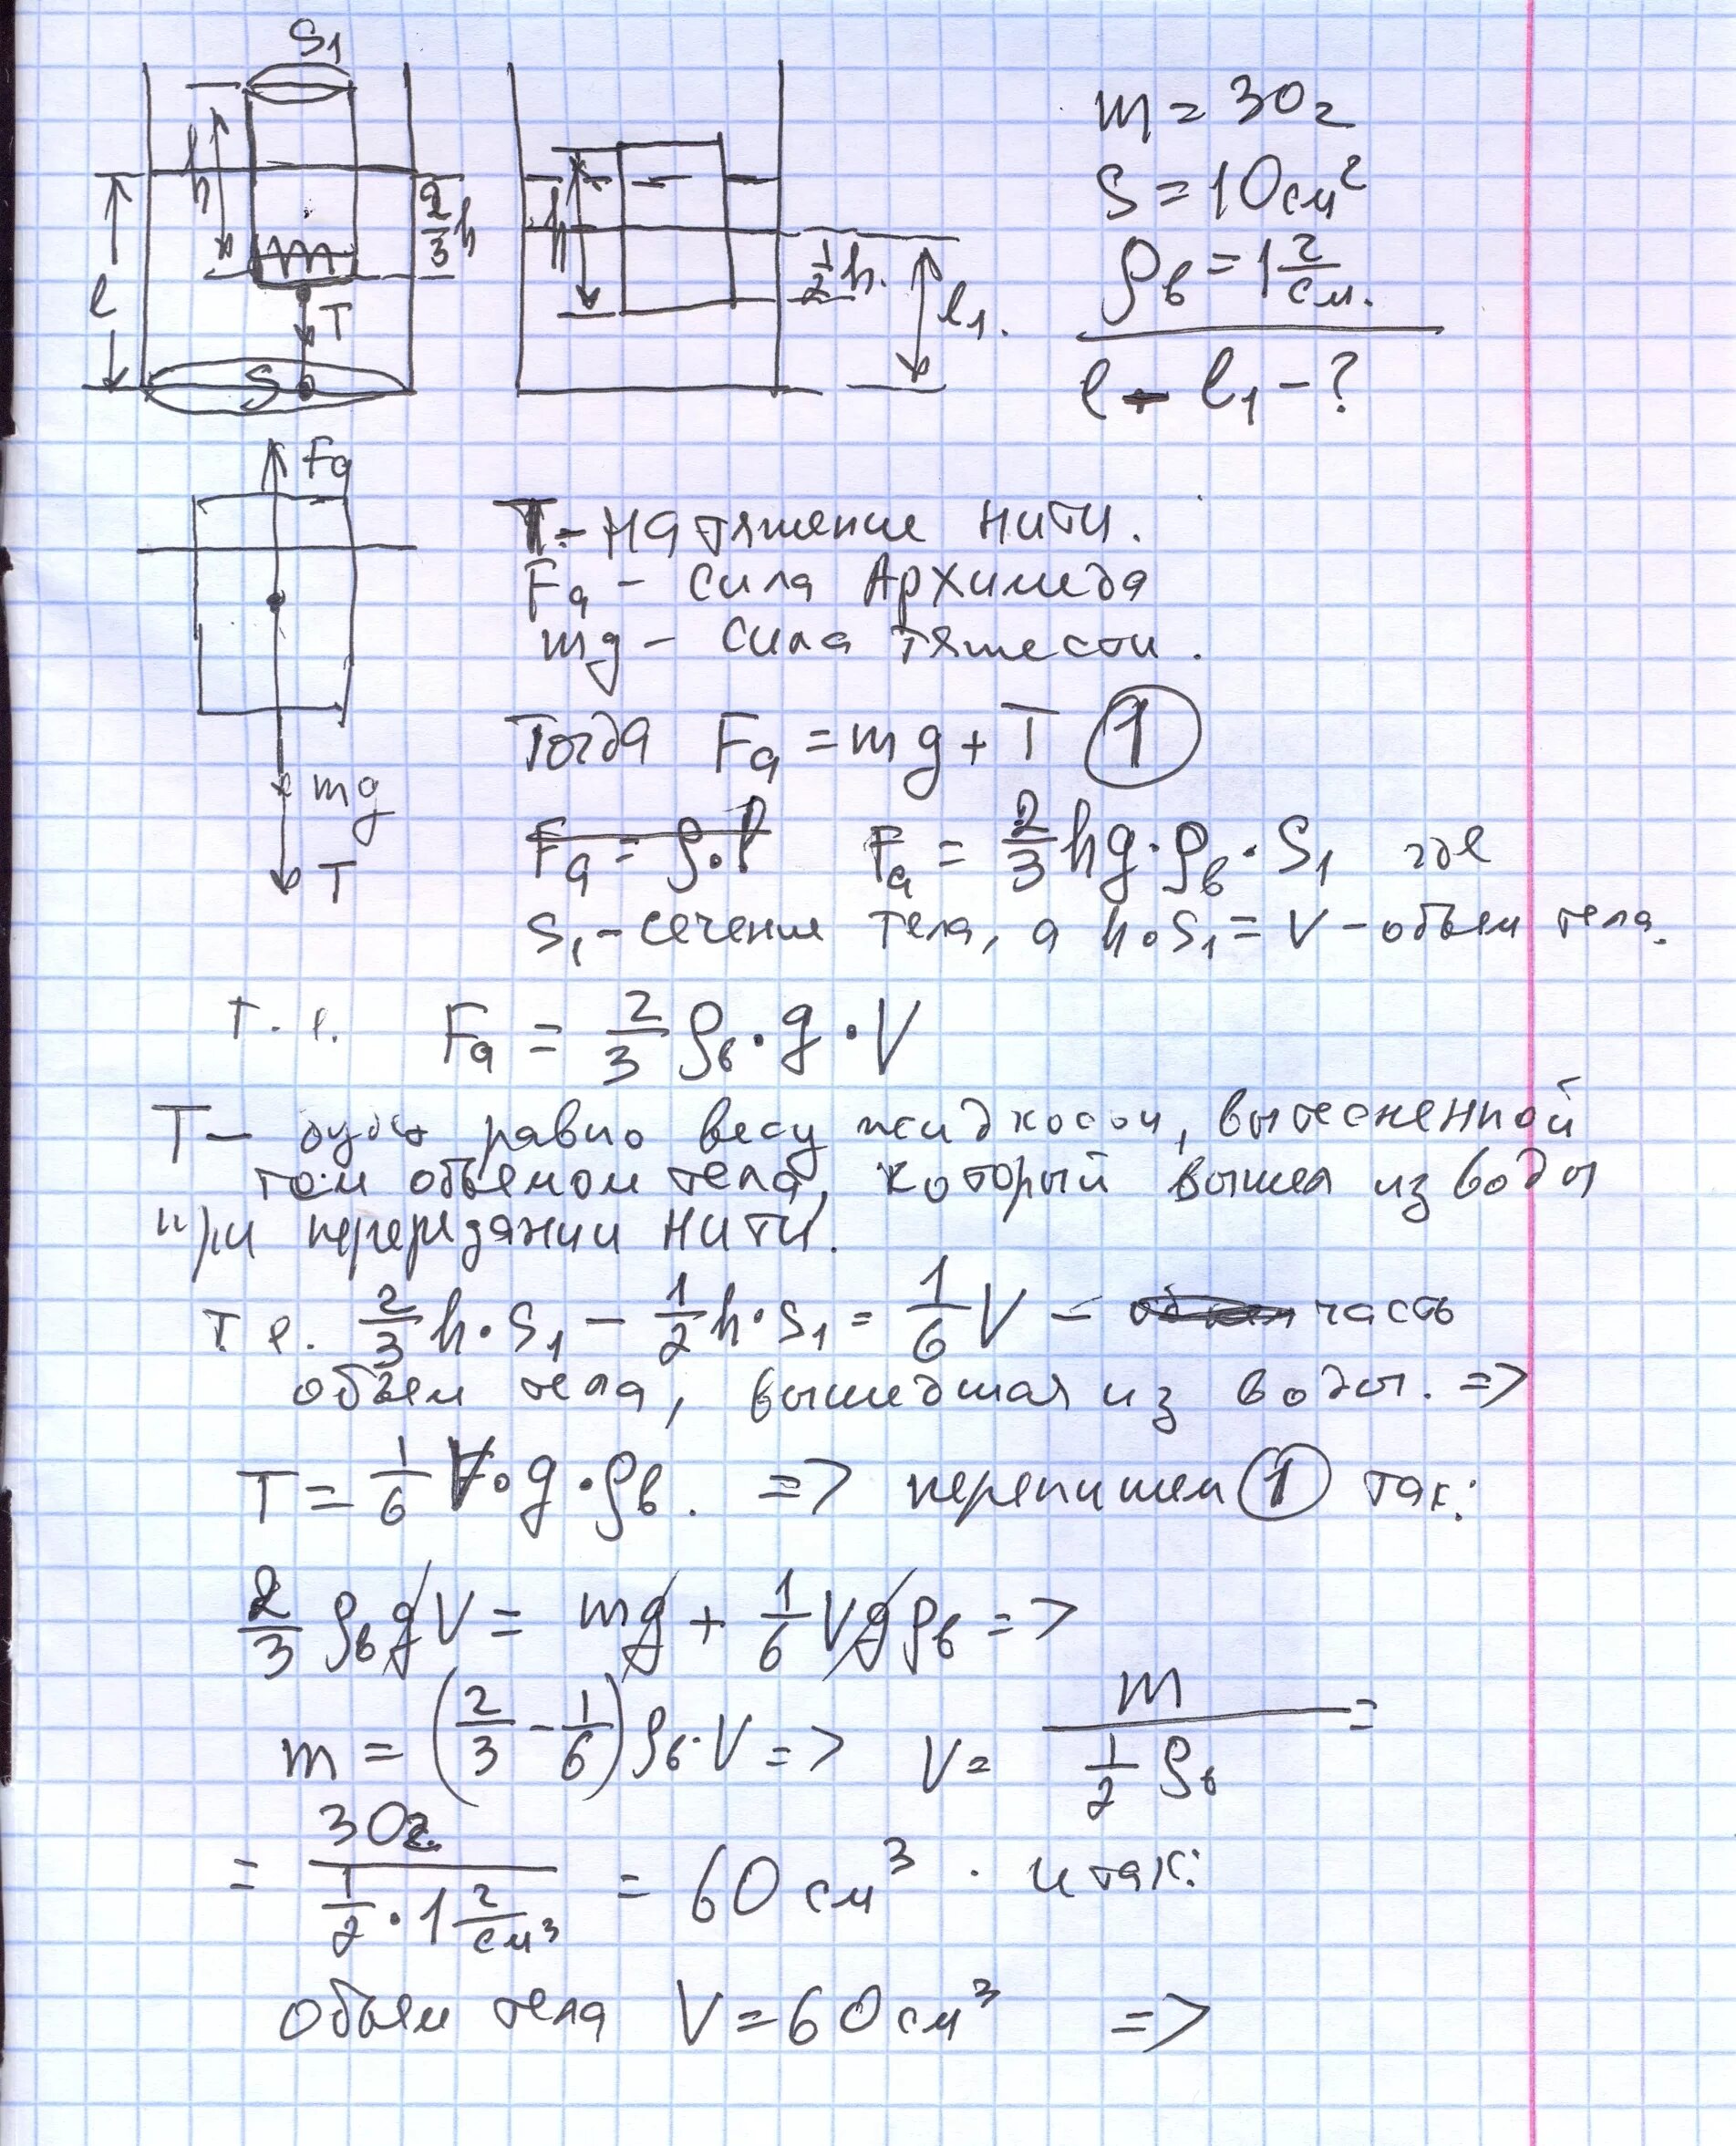 S₁
h
l
2/3 h
m
T
S
h
1/2 h.
l₁.
m = 30г
S = 10см²
ρв = 1 г/см.
l - l₁ - ?
Fа
mg
T
T - натяжение нити.
Fа - сила Архимеда
mg - сила тяжести.
Тогда Fа = mg + T ①
Fа = ρ·l Fа = 2/3 hg·ρв·S₁ где
S₁ - сечение тела, а h·S₁ = V - объем тела.
т.е. Fа = 2/3 ρв·g·V
T - будет равно весу жидкости, вытесненной
тем объемом тела, который вышел из воды
при перерезании нити.
т.е. 2/3 h·S₁ - 1/2 h·S₁ = 1/6 V - часть
объем тела, вышедшая из воды. =>
T = 1/6 V·g·ρв. => перепишем ① так:
2/3 ρв g V = mg + 1/6 V g ρв =>
m = (2/3 - 1/6) ρв·V => V = m / (1/2 ρв) =
= 30г. / (1/2 · 1 г/см³) = 60 см³. итак:
объем тела V = 60 см³ =>